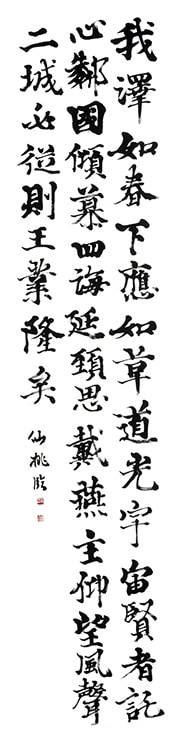 我澤如春下應如草道光宇宙賢者託
心鄰國傾慕四海延頸思戴燕主仰望風聲
二城必從則王業隆矣
仙桃臨